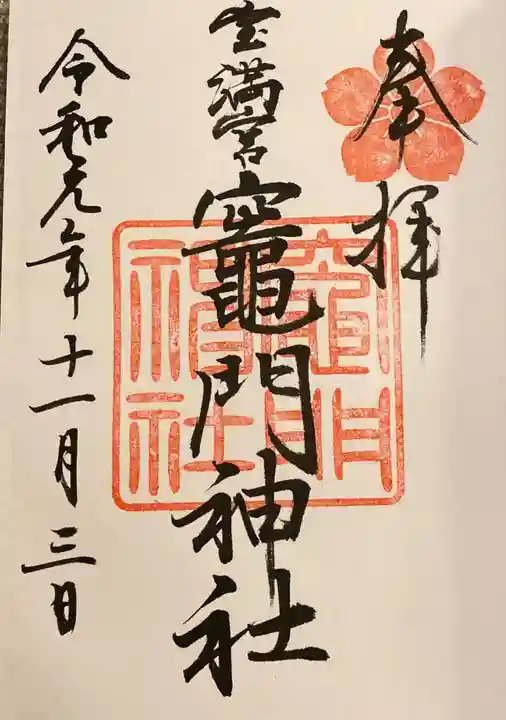 奉拝
宝満宮竈門神社
竈門神社
令和元年十一月三日